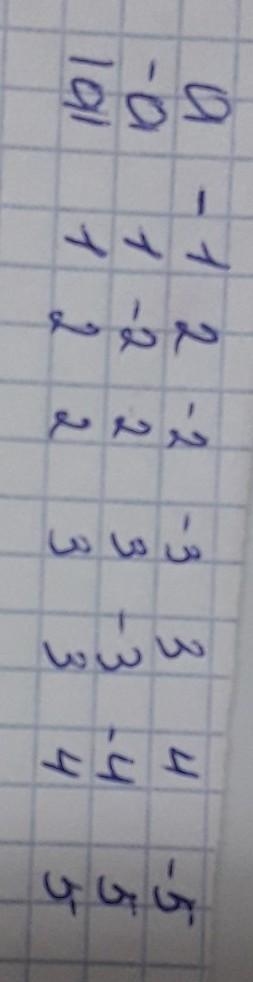 a -1 2 -2 -3 3 4 -5
-a 1 -2 2 3 -3 -4 5
|a| 1 2 2 3 3 4 5